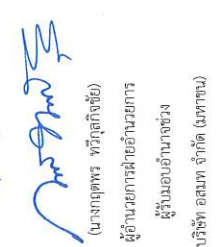 (นางกฤตพร ทวีกุลกิจชัย)
ผู้อำนวยการฝ่ายอำนวยการ
ผู้รับมอบอำนาจช่วง
บริษัท อสมท จำกัด (มหาชน)